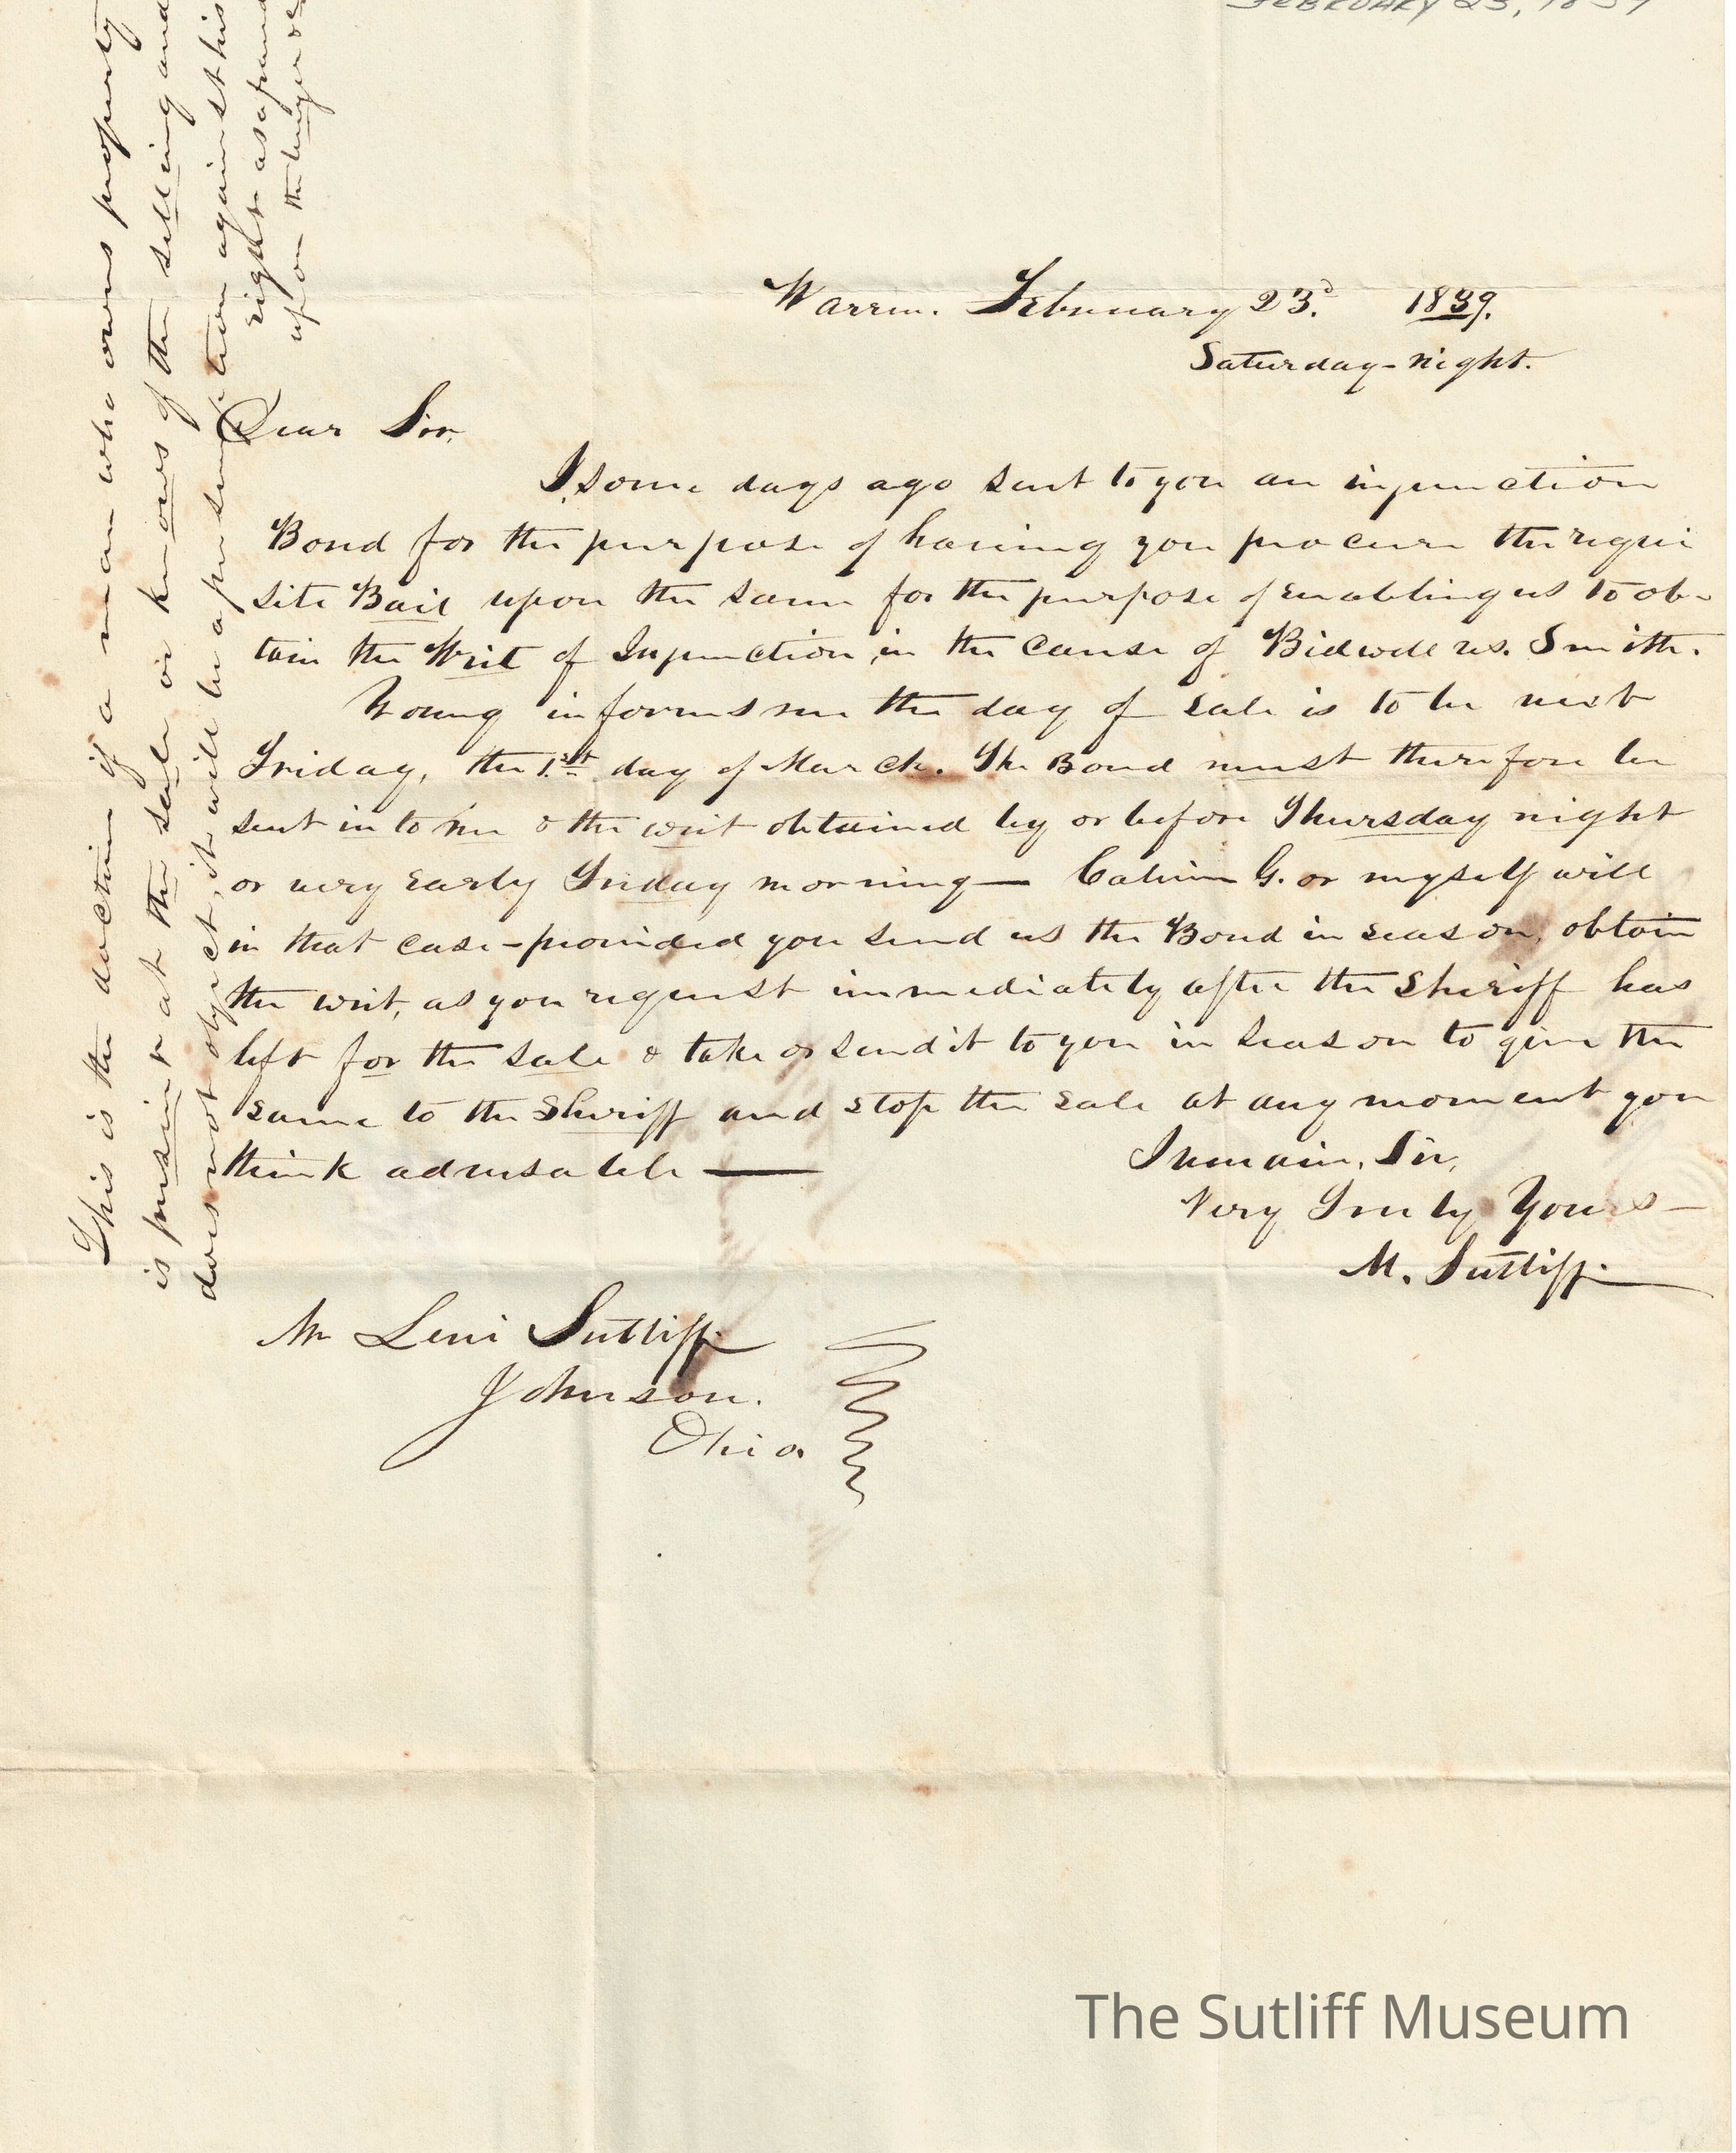 FEBRUARY 23, 1839
Warren. February 23.d 1839.
Saturday-night.
Dear Sir.
I some days ago sent to you an injunction
Bond for the purpose of having you procure the requi
site Bail upon the same for the purpose of enabling us to ob-
tain the Writ of Injunction, in the cause of Bidwell vs. Smith.
Young informs me the day of sale is to be next
Friday, the 1.st day of March. The Bond must therefore be
sent in to me & the writ obtained by or before Thursday night
or very early Friday morning— Calvin G. or myself will
in that case-provided you send us the Bond in season, obtain
the writ, as you request immediately after the Sheriff has
left for the sale & take or send it to you in season to give the
same to the Sheriff and stop the sale at any moment you
think advisable —
I remain, Sir,
Very Truly Yours—
M. Sutliff.
Mr Levi Sutliff.
Johnson.
Ohio
This is the doctrine if a man who owns property
is present at the sale or knows of the selling and
does not object, it will be a presumption against his
right as
upon the buyer
The Sutliff Museum